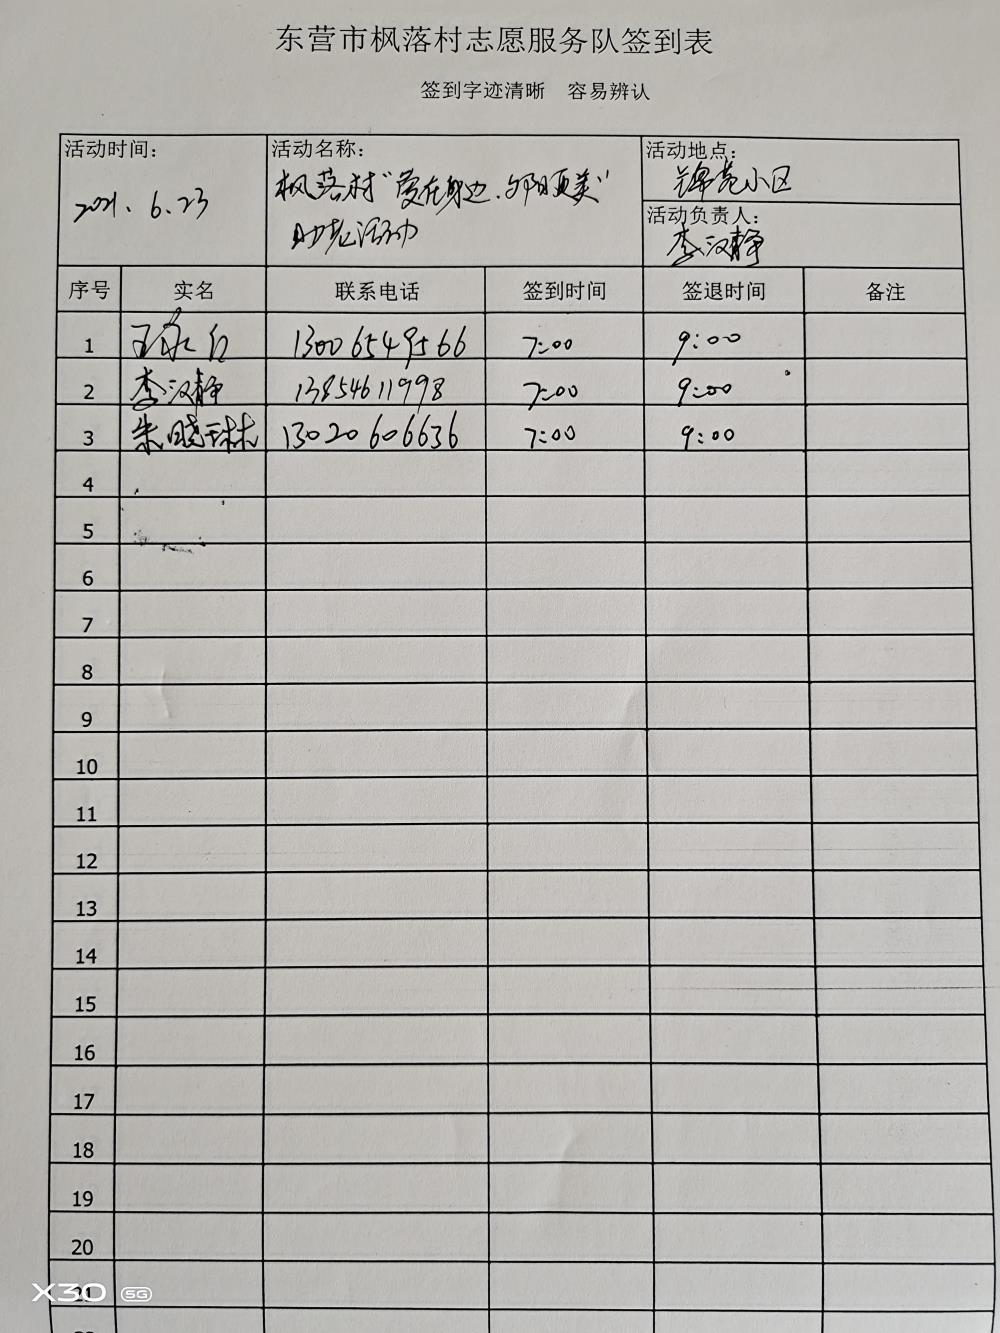 东营市枫落村志愿服务队签到表
签到字迹清晰 容易辨认
活动时间:
2021. 6.23
活动名称:
枫落村“爱在身边、夕阳更美”
助老活动
活动地点:
锦苑小区
活动负责人:
李汉静
序号 实名 联系电话 签到时间 签退时间 备注
1 王永红 13006549566 7:00 9:00
2 李汉静 13854611998 7:00 9:00
3 朱晓琳 13020606636 7:00 9:00
4
5
6
7
8
9
10
11
12
13
14
15
16
17
18
19
20
21
X30 5G